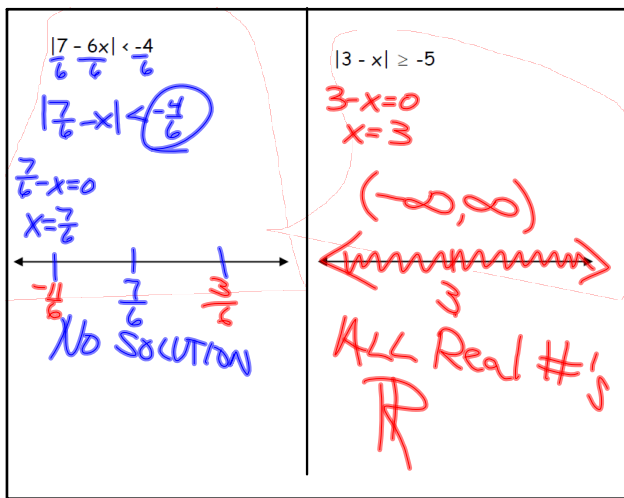 |7 - 6x| < -4
6 6 6
|7/6 - x| < -4/6
7/6 - x = 0
x = 7/6
-4/6 7/6 3/6
NO SOLUTION
|3 - x| ≥ -5
3 - x = 0
x = 3
(-∞, ∞)
3
ALL Real #'s
ℝ